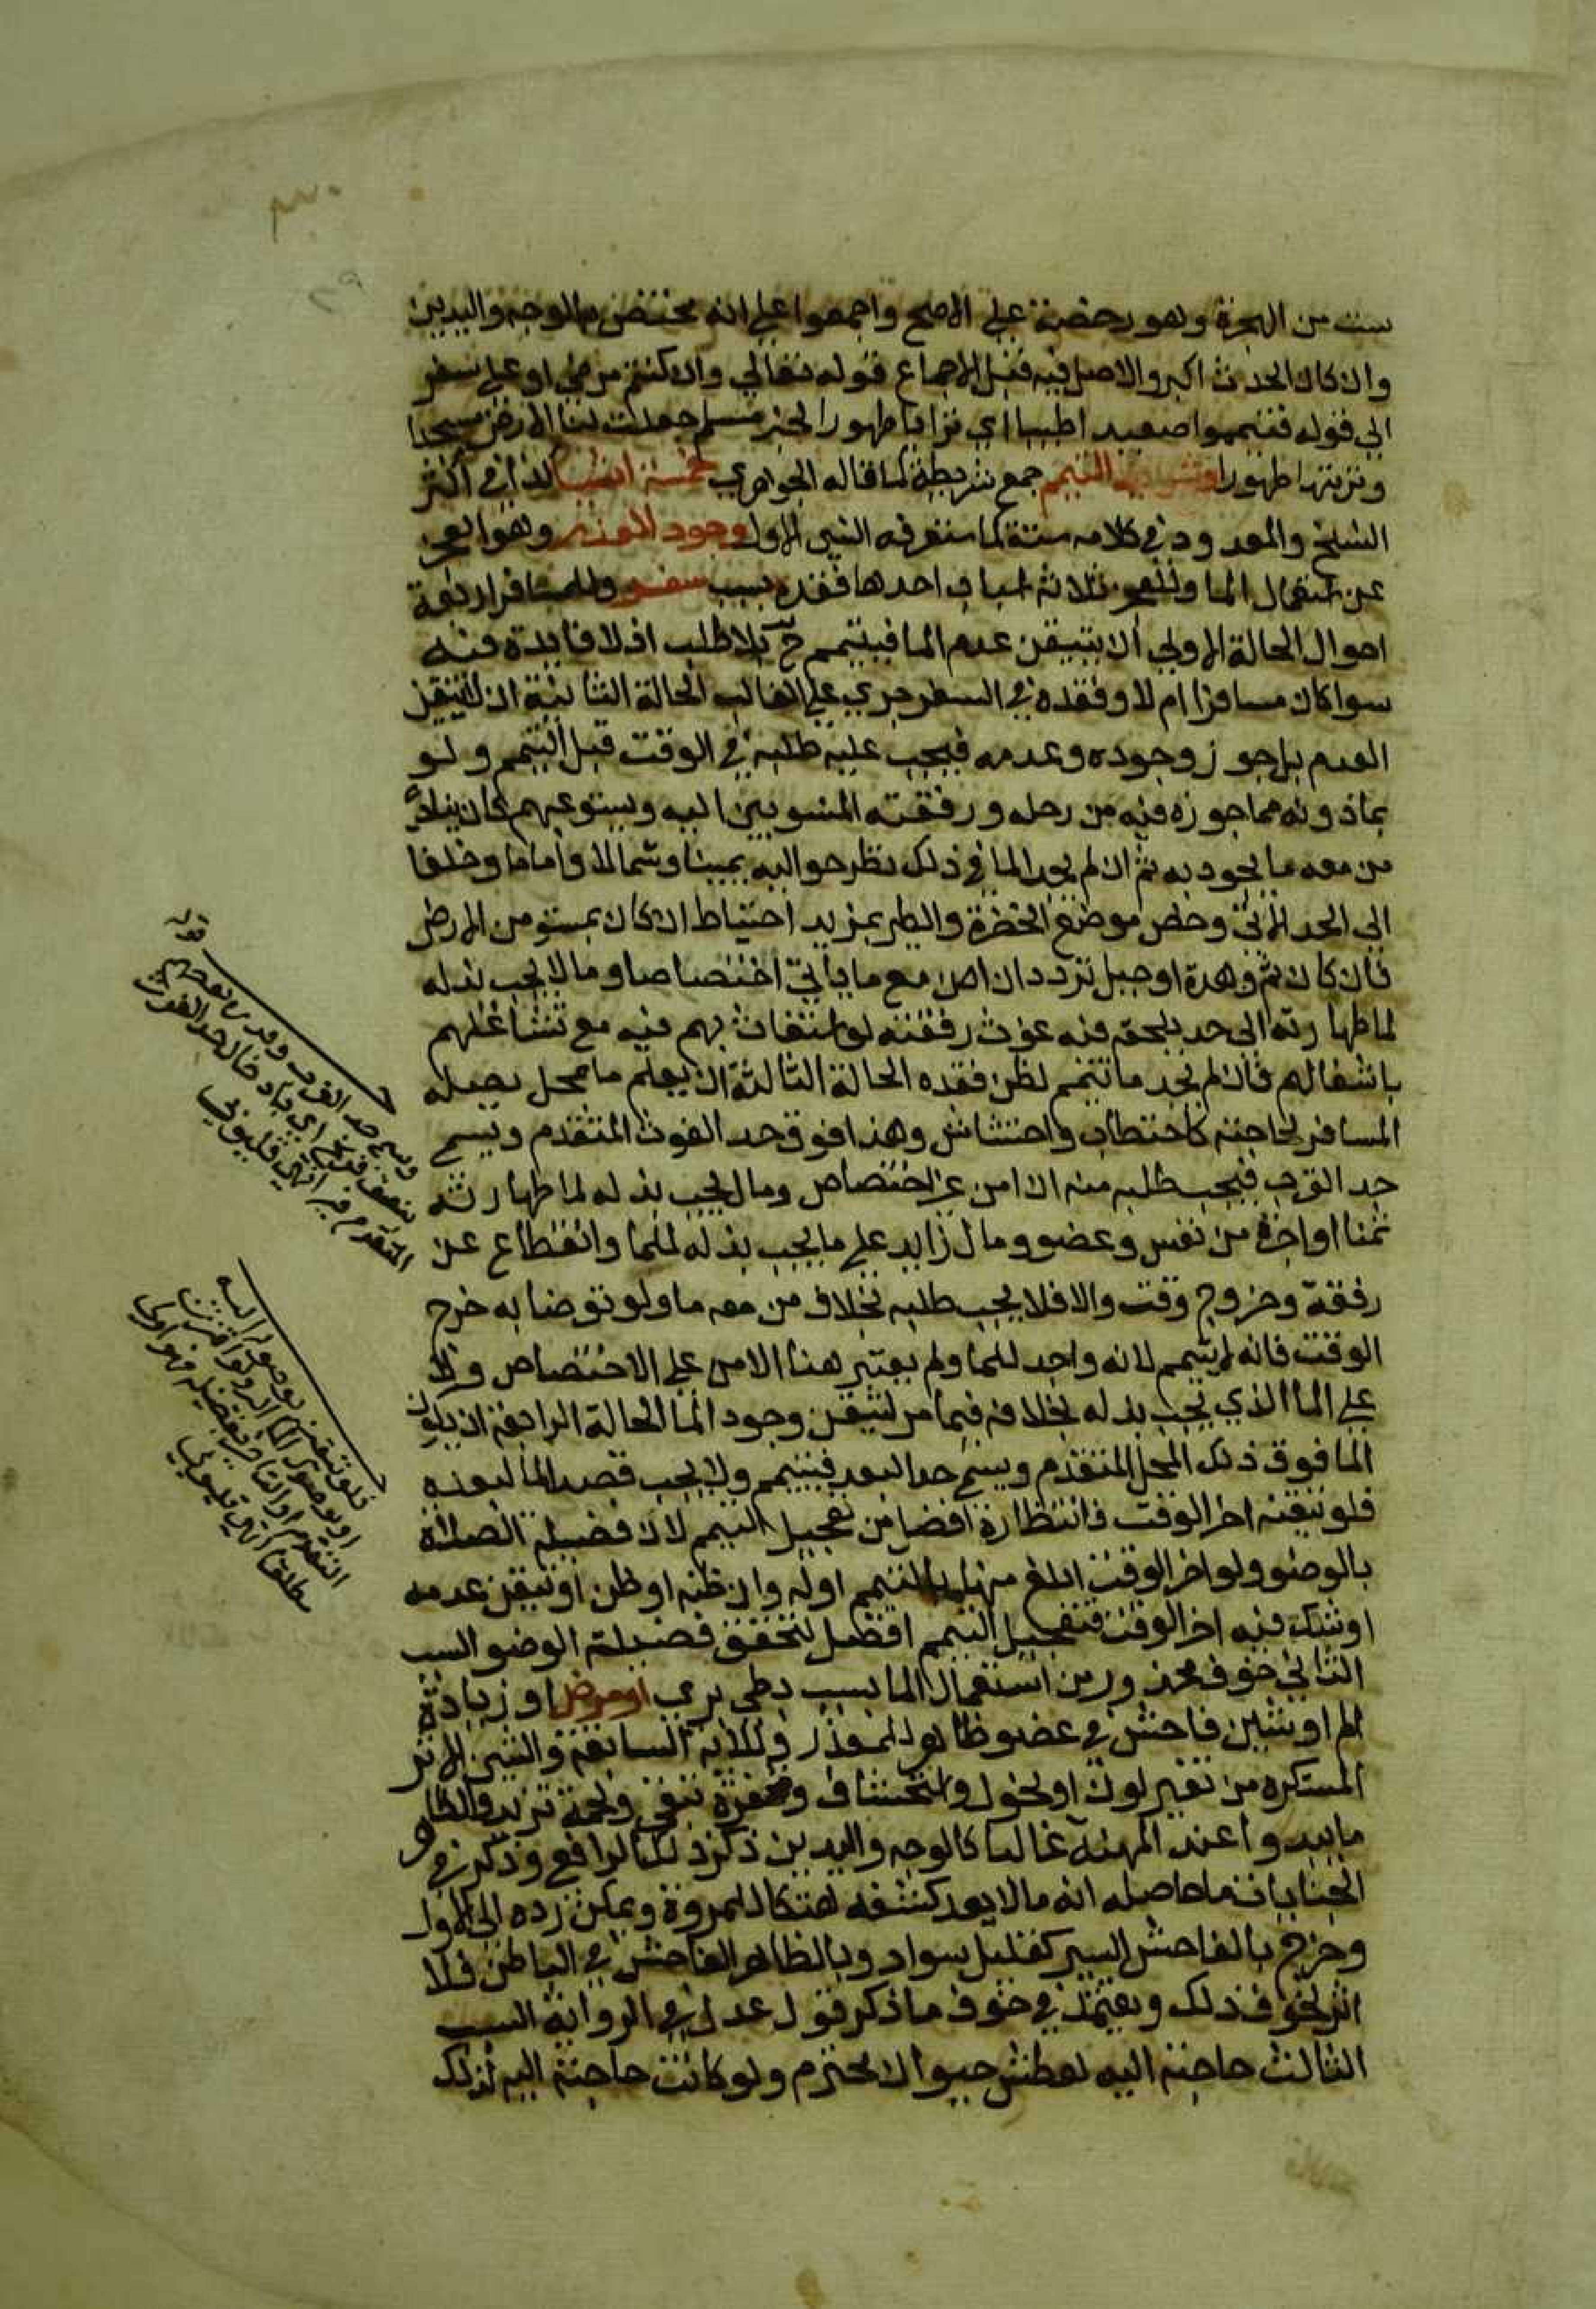 ست من الهجرة وهو رخصة على الاصح واجمعوا على انه مختص بالوجه واليدين
وان كان الحدث اكبر والاصل فيه قبل الاجماع قوله تعالي وان كنتم مرضي او على سفر
الى قوله فتيمموا صعيدا طيبا اي ترابا طهورا لخبر مسلم جعلت لنا الارض مسجدا
وتربتها طهورا وشرايط التيمم جمع شريطة كما قاله الجوهري خمسة اشيا كذا في اكثر
النسخ والمعدود في كلامه ستة كما ستعرفه الشي الاول وجود العذر وهو العجز
عن استعمال الما وللعجز ثلاثة اسباب احدها فقده بسبب سفر وللمسافر اربعة
احوال الحالة الاولى ان يتيقن عدم الما فيتيمم ح بلا طلب اذ لا فايدة فيه
سوا كان مسافرا ام لا وفقده في السفر جري على الغالب الحالة الثانية ان لا يتيقن
العدم بل جوز وجوده وعدمه فيجب عليه طلبه في الوقت قبل التيمم ولو
بماذونه مما جوزه فيه من رحله ورفقته المنسوبين اليه ويستوعبهم كان ينادي
من معه ما يجود به ثم ان لم يجد الما في ذلك نظر حواليه يمينا وشمالا واماما وخلفا
الى الحد الاتي وخص موضع الخضرة والطير بمزيد احتياط ان كان بمستو من الارض
فان كان ثم وهدة او جبل تردد ان امن مع ما ياتي اختصاصا وما لا يجب بذله
لما طهارته الى حد يلحقه فيه غوث رفقته لو استغاث بهم فيه مع تشاغلهم
باشغالهم فان لم يجد ما تيمم لظن فقده الحالة الثالثة ان يعلم ما بمحل يصله
المسافر لحاجته كاحتطاب واحتشاش وهذا فوق حد الغوث المتقدم ويسمى
حد القرب فيجب طلبه منه ان امن غير اختصاص ومال يجب بذله لما طهارته
ثمنا او اجرة من نفس وعضو ومال زايد على ما يجب بذله للما وانقطاع عن
رفقة وخروج وقت والا فلا يجب طلبه بخلاف من معه ما ولو توضا به خرج
الوقت فانه لا يتيمم لانه واجد للما ولم يعتبر هنا الامن على الاختصاص ولا
على الما الذي يجب بذله بخلافه فيما مر لتيقن وجود الما الحالة الرابعة ان يكون
الما فوق ذلك المحل المتقدم ويسمى حد البعد فيتيمم ولا يجب قصد الما لبعده
فلو تيقنه اخر الوقت فانتظاره افضل من تعجيل التيمم لان فضيلة الصلاة
بالوضو ولو اخر الوقت ابلغ منها بالتيمم اوله وان ظنه او ظن او تيقن عدمه
او شك فيه اخر الوقت فتعجيل التيمم افضل لتحقق فضيلة الوضو السبب
الثاني خوف محذور من استعمال الما بسبب بطي بري او مرض او زيادة
الم او شين فاحش في عضو ظاهر للعذر وللاية السابقة والشين الاثر
المستكره من تغير لون او نحول واستحشاف وثغرة تبقى ولحمة تزيد والظاهر
ما يبدوا عند المهنة غالبا كالوجه واليدين ذكر ذلك الرافعي وذكر في
الجنايات ما حاصله انه مالا يعد كشفه هتكا للمروة ويمكن رده الى الاول
وخرج بالفاحش اليسير كقليل سواد وبالظاهر الفاحش في الباطن فلا
اثر لخوف ذلك ويعتمد في خوف ما ذكر قول عدل في الرواية السبب
الثالث حاجته اليه لعطش حيوان محترم ولو كانت حاجته اليه لذلك
قوله
ويسمى حد القرب وقدر بعضهم
بنصف فرسخ اي
المتقدم فيه انتهى قليوبي
فلو تيقنه
المتقدم
مطلقا انتهى قليوبي